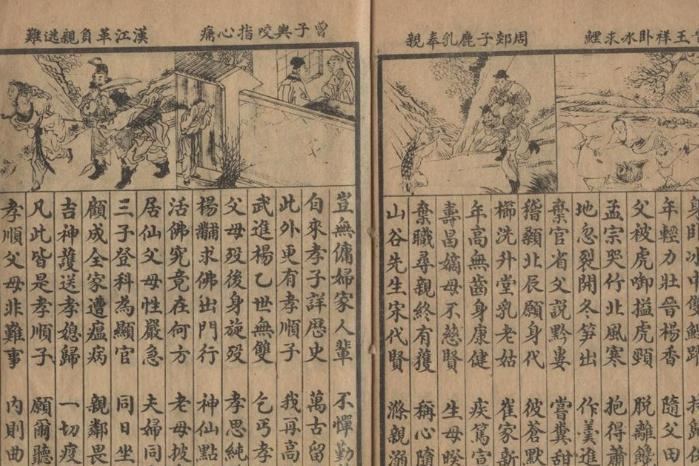 王祥卧冰求鯉
周郯子鹿乳奉親
年輕力壯晉楊香 隨父田
父被虎啣搤虎頸 脫離饞
孟宗哭竹北風寒 抱得蕭
地忽裂開冬笋出 作羹進
棄官省父說黔婁 嘗糞甜
稽顙北辰願身代 彼蒼默
櫛洗升堂乳老姑 崔家新
年高無齒身康健 疾篤官
壽昌嫡母不慈賢 生母暌
棄職尋親終有獲 稱心隨
山谷先生宋代賢 滌親溺
曾子輿咬指心痛
漢江革負親逃難
豈無傭婦家人輩 不憚勤
自來孝子詳歷史 萬古留
此外更有孝順子 我再高
武進楊乙世無雙 乞丐孝
父母歿後身旋歿 孝思純
楊黼求佛出門行 神仙點
活佛究竟在何方 老母披
居仙父母性嚴急 夫婦同
三子登科為顯官 同日坐
顧成全家遭瘟病 親鄰畏
吉神護送孝媳歸 一切疫
凡此皆是孝順子 願爾聽
孝順父母非難事 內則曲